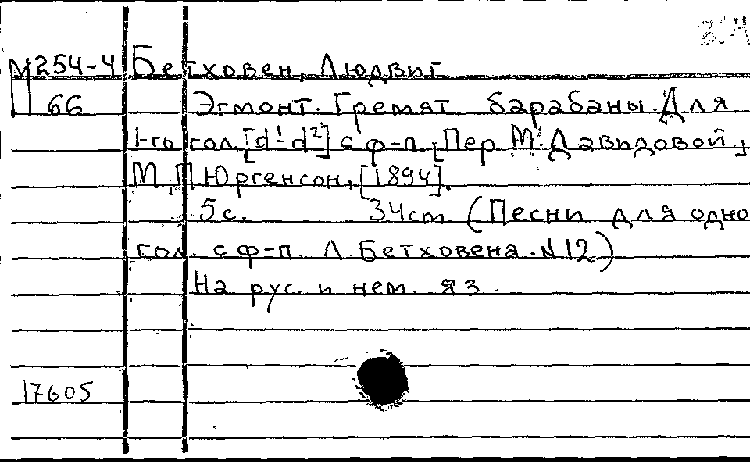 М254-4 Бетховен, Людвиг
66 Эгмонт. Гремят барабаны. Для
1-го гол. [d¹-d²] с ф-п. [Пер М. Давыдовой],
М., П. Юргенсон, [1894].
5с. 34cm (Песни для одно
гол. с ф-п. Л. Бетховена. №12)
На рус. и нем. яз.
17605